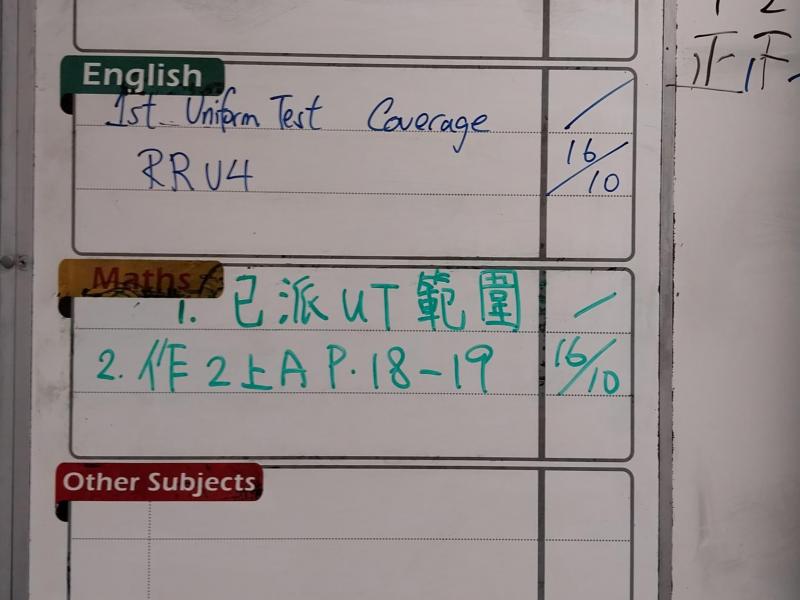 1 2
正 正
English
1st Uniform Test Coverage /
RRU4 16/10
Maths
1. 已派UT範圍 /
2. 作2上A P.18-19 16/10
Other Subjects